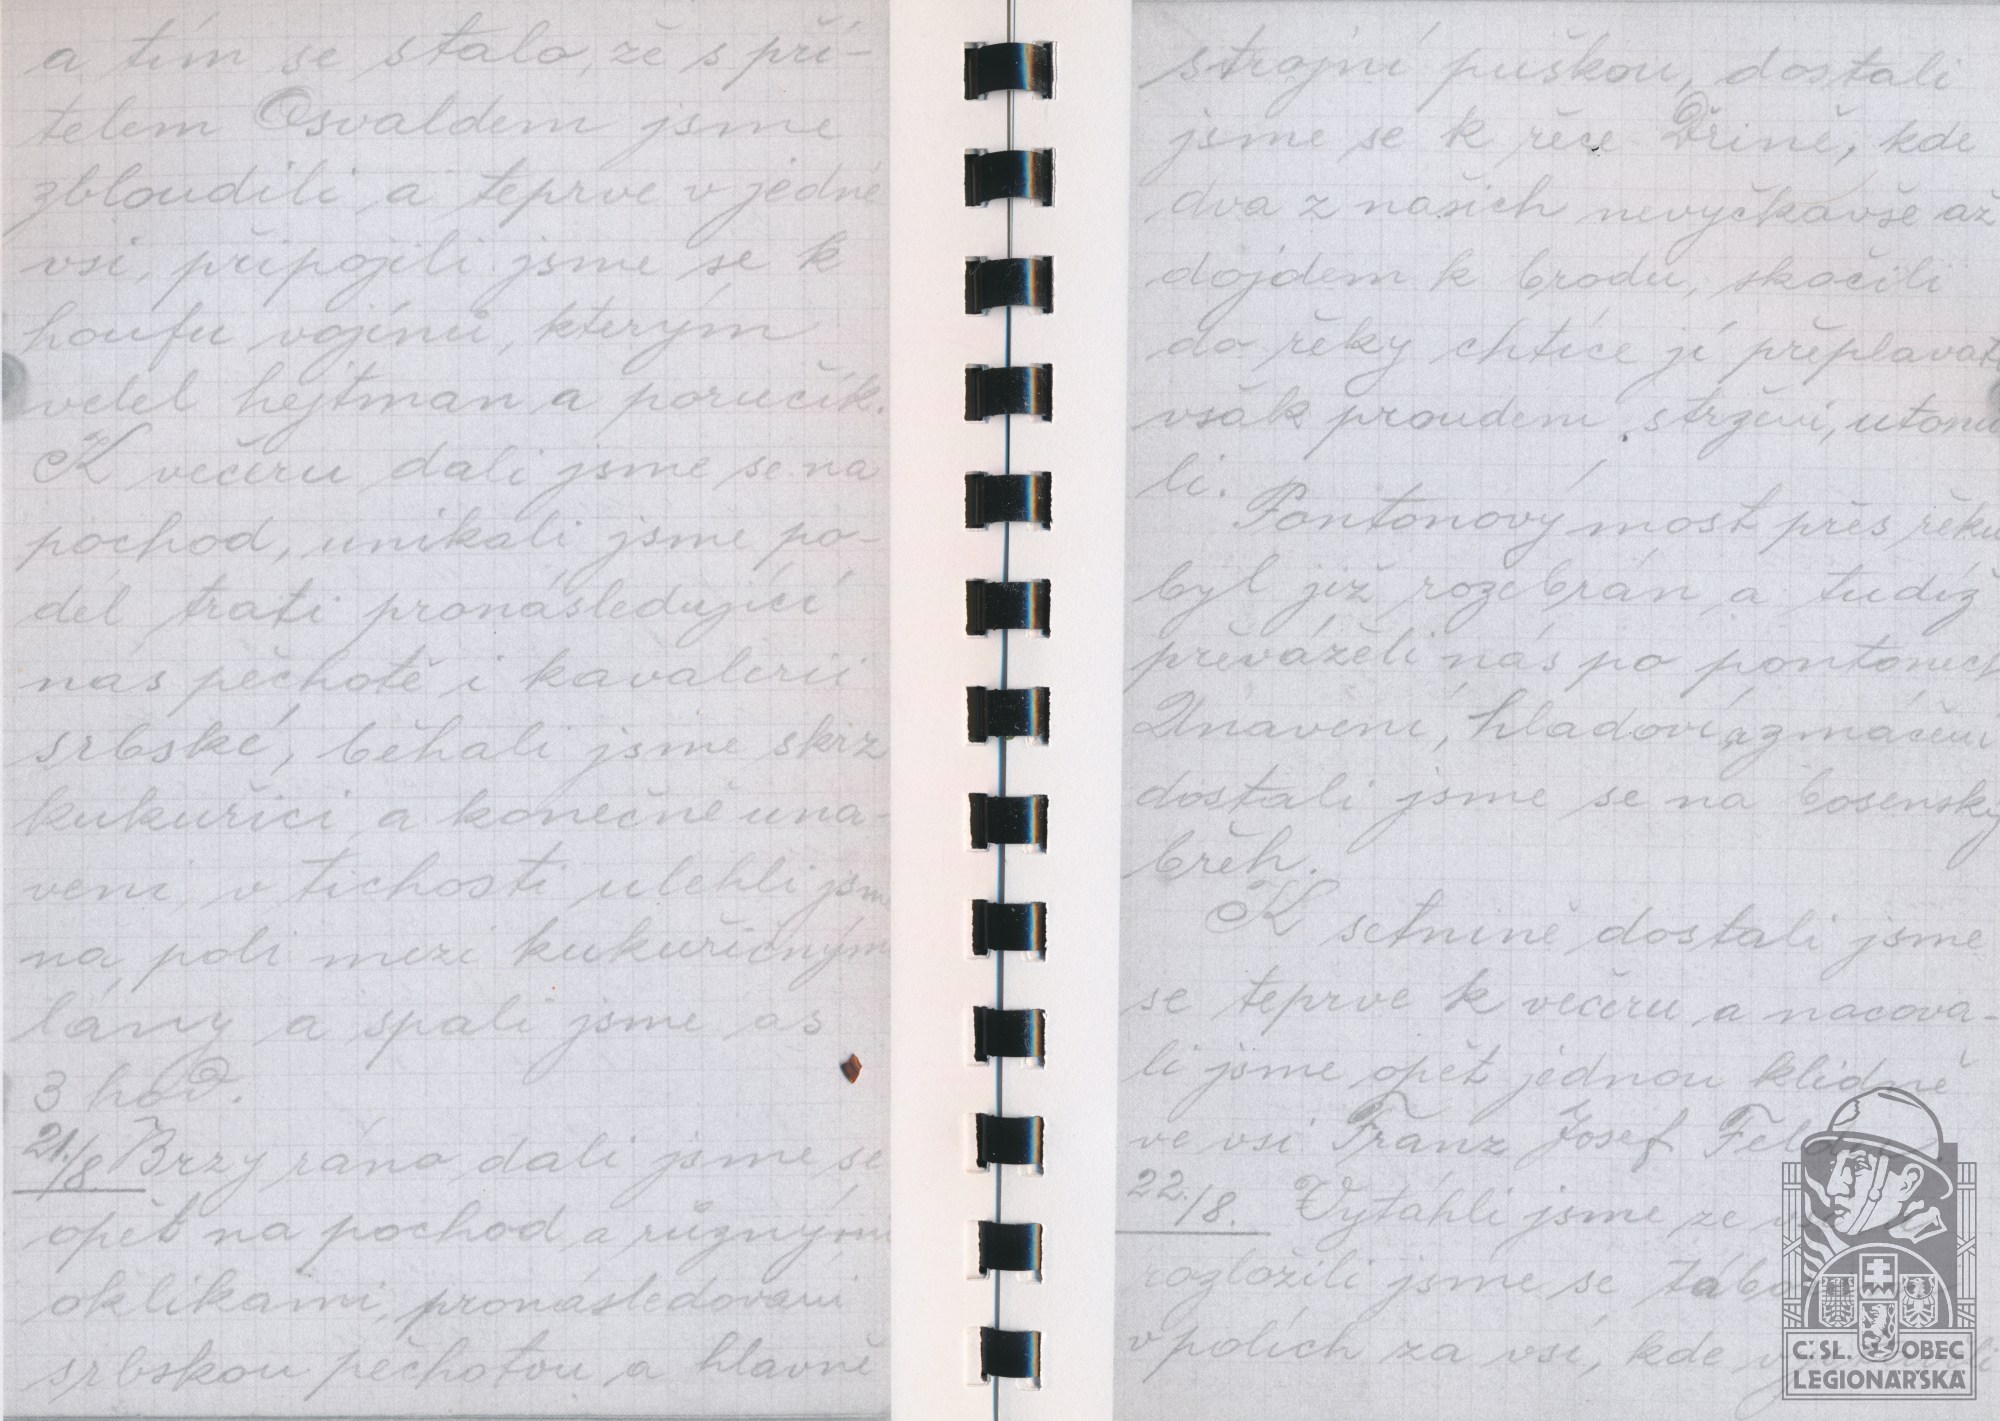 a tím se stalo, že s pří-
telem Osvaldem jsme
zbloudili a teprve v jedné
vsi, připojili jsme se k
houfu vojínů, kterým
velel hejtman a poručík.
K večeru dali jsme se na
pochod, unikali jsme po-
dél trati pronásledující
nás pěchotě i kavalerii
srbské, běhali jsme skrz
kukuřici a konečně una-
veni, v tichosti ulehli jsme
na poli mezi kukuřičnými
lány a spali jsme as
3 hod.
21./8. Brzy ráno dali jsme se
opět na pochod a různými
oklikami, pronásledováni
srbskou pěchotou a hlavně
strojní puškou, dostali
jsme se k řece Dřině, kde
dva z našich nevyčkavše až
dojdem k brodu, skočili
do řeky chtíce jí přeplavat
však proudem strženi, utonu
li.
Pontonový most přes řeku
byl již rozebrán a tudíž
převáželi nás po pontonech
Unaveni, hladoví a zmáčeni
dostali jsme se na bosenský
břeh.
K setnině dostali jsme
se teprve k večeru a nacova-
li jsme opět jednou klidně
ve vsi Franz Josef
22./8. Vytáhli jsme ze
rozložili jsme se
v polích za vsí, kde
Č.SL. OBEC
LEGIONÁŘSKÁ